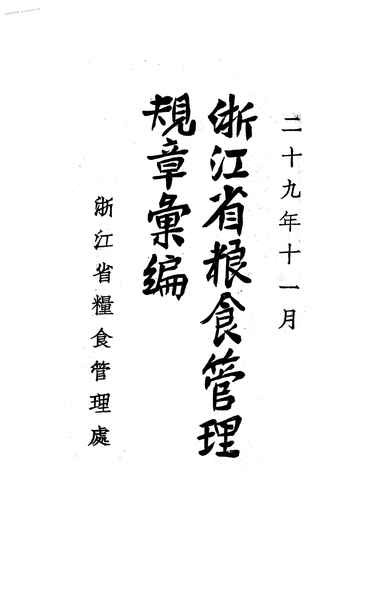 二十九年十一月
浙江省粮食管理
規章彙編
浙江省糧食管理處